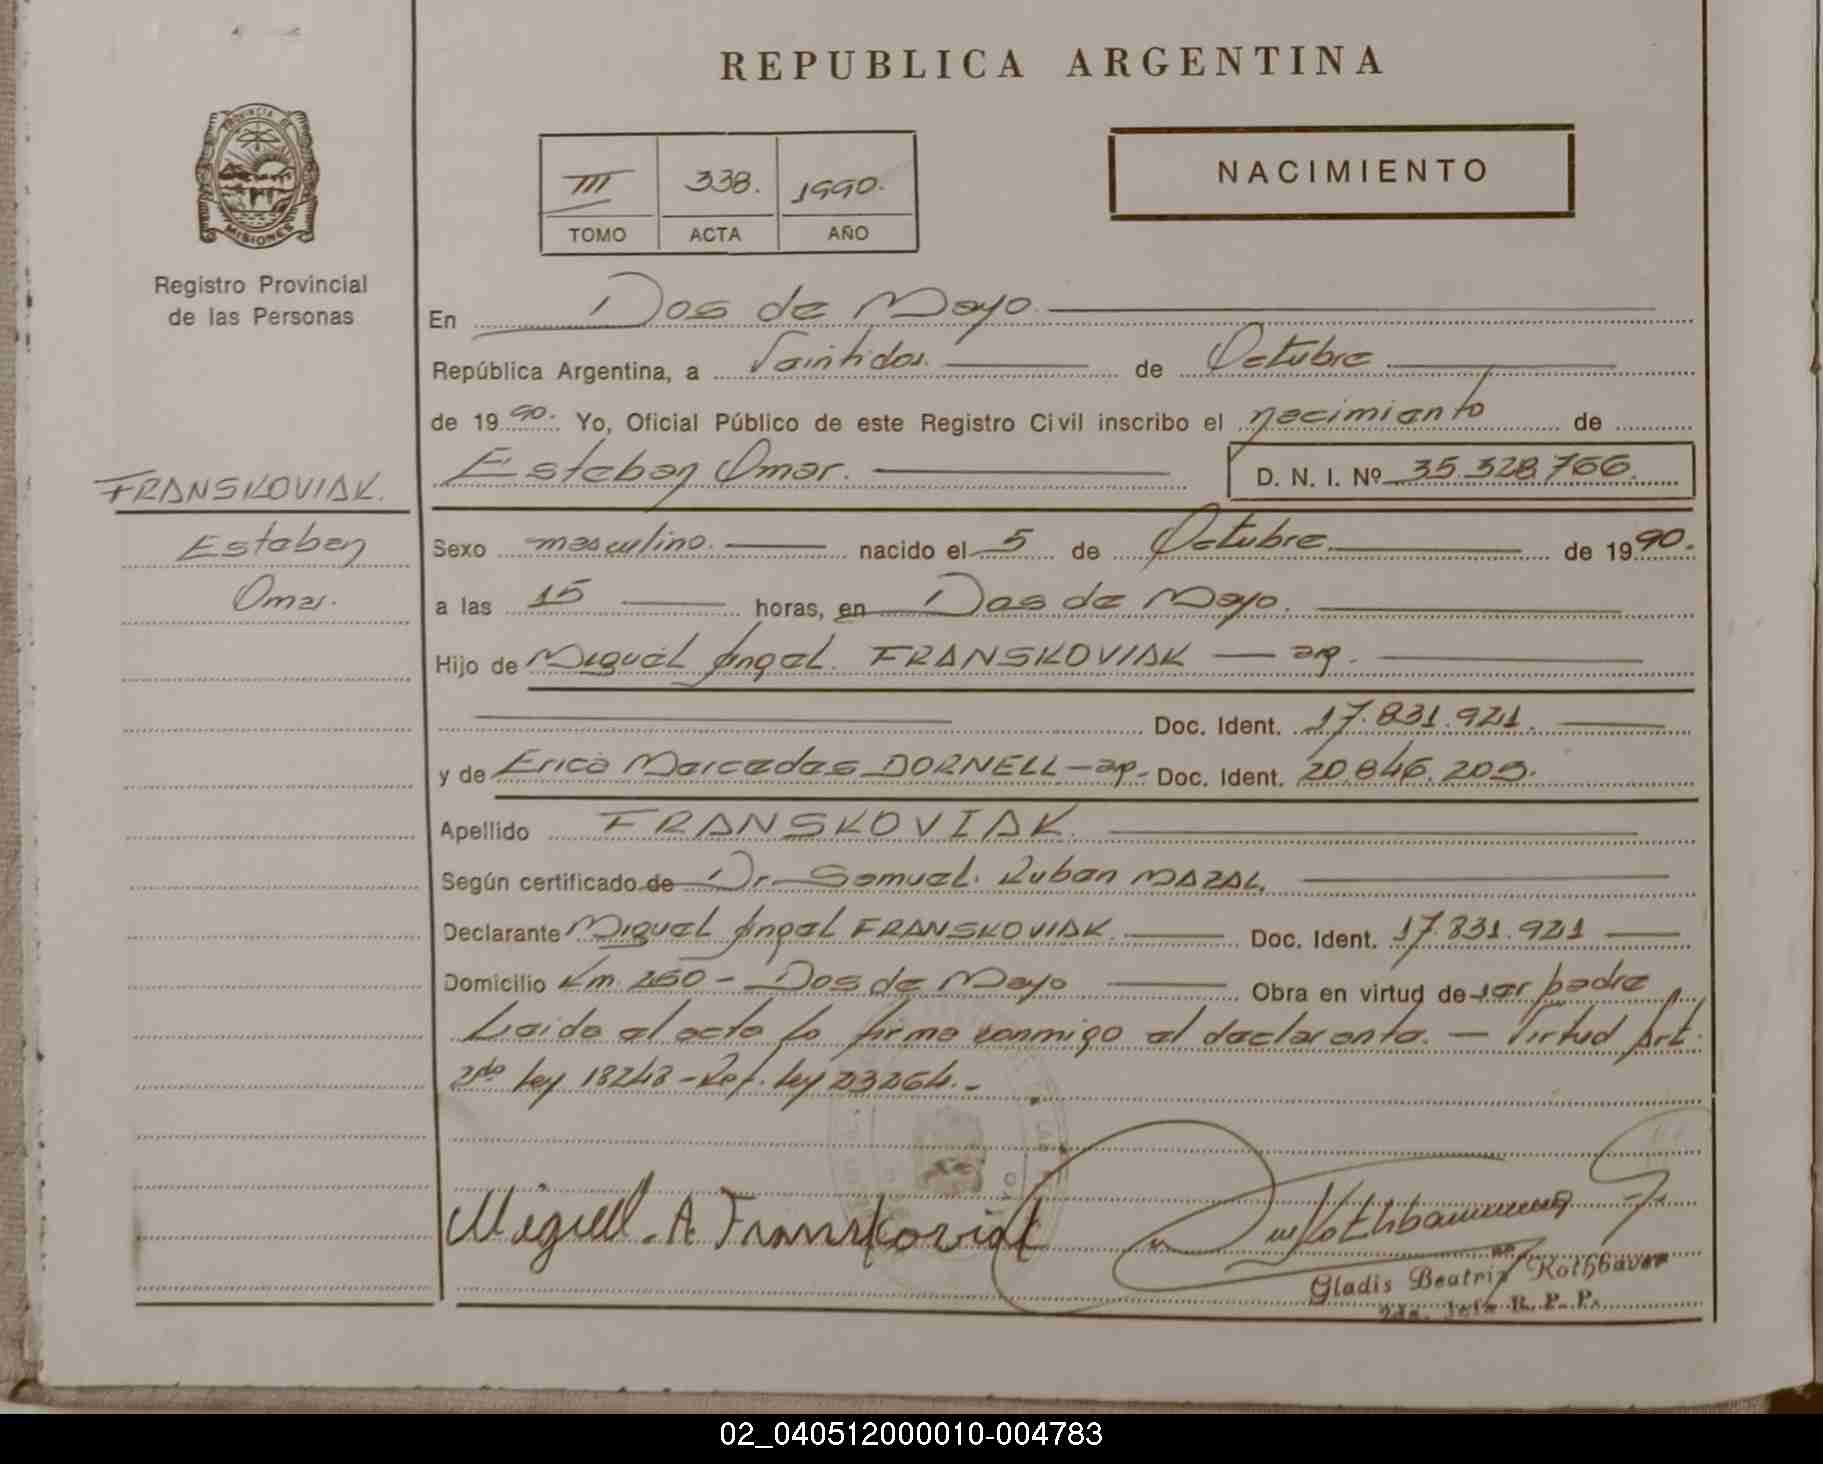 REPUBLICA ARGENTINA
PROVINCIA DE
MISIONES
Registro Provincial
de las Personas
III 338. 1990.
TOMO ACTA AÑO
NACIMIENTO
En Dos de Mayo
República Argentina, a Vaintidos. de Octubre
de 1990. Yo, Oficial Público de este Registro Civil inscribo el nacimianto de
Esteban Omar. D. N. I. Nº 35.328.766.
FRANSKOVIAK.
Esteban
Omar.
Sexo masculino. nacido el 5 de Octubre de 1990.
a las 15 horas, en Dos de Mayo.
Hijo de Miguel Angel. FRANSKOVIAK — arg.
Doc. Ident. 17.831.921.
y de Erica Marcedes DORNELL — arg. Doc. Ident. 20.846.209.
Apellido FRANSKOVIAK.
Según certificado de Dr. Samuel. Ruban MAZAL.
Declarante Miguel Angel FRANSKOVIAK. Doc. Ident. 17.831.921
Domicilio Km. 260 - Dos de Mayo Obra en virtud de ser padre
Laida el acta la firma conmigo el daclaranta. — Virtud Art.
2do ley 18248 - Ref. ley 23264. -
Miguel. A Franskoviak
Gladis Beatriz Rothbauer
2da. Jefa R. P. P.
02_040512000010-004783